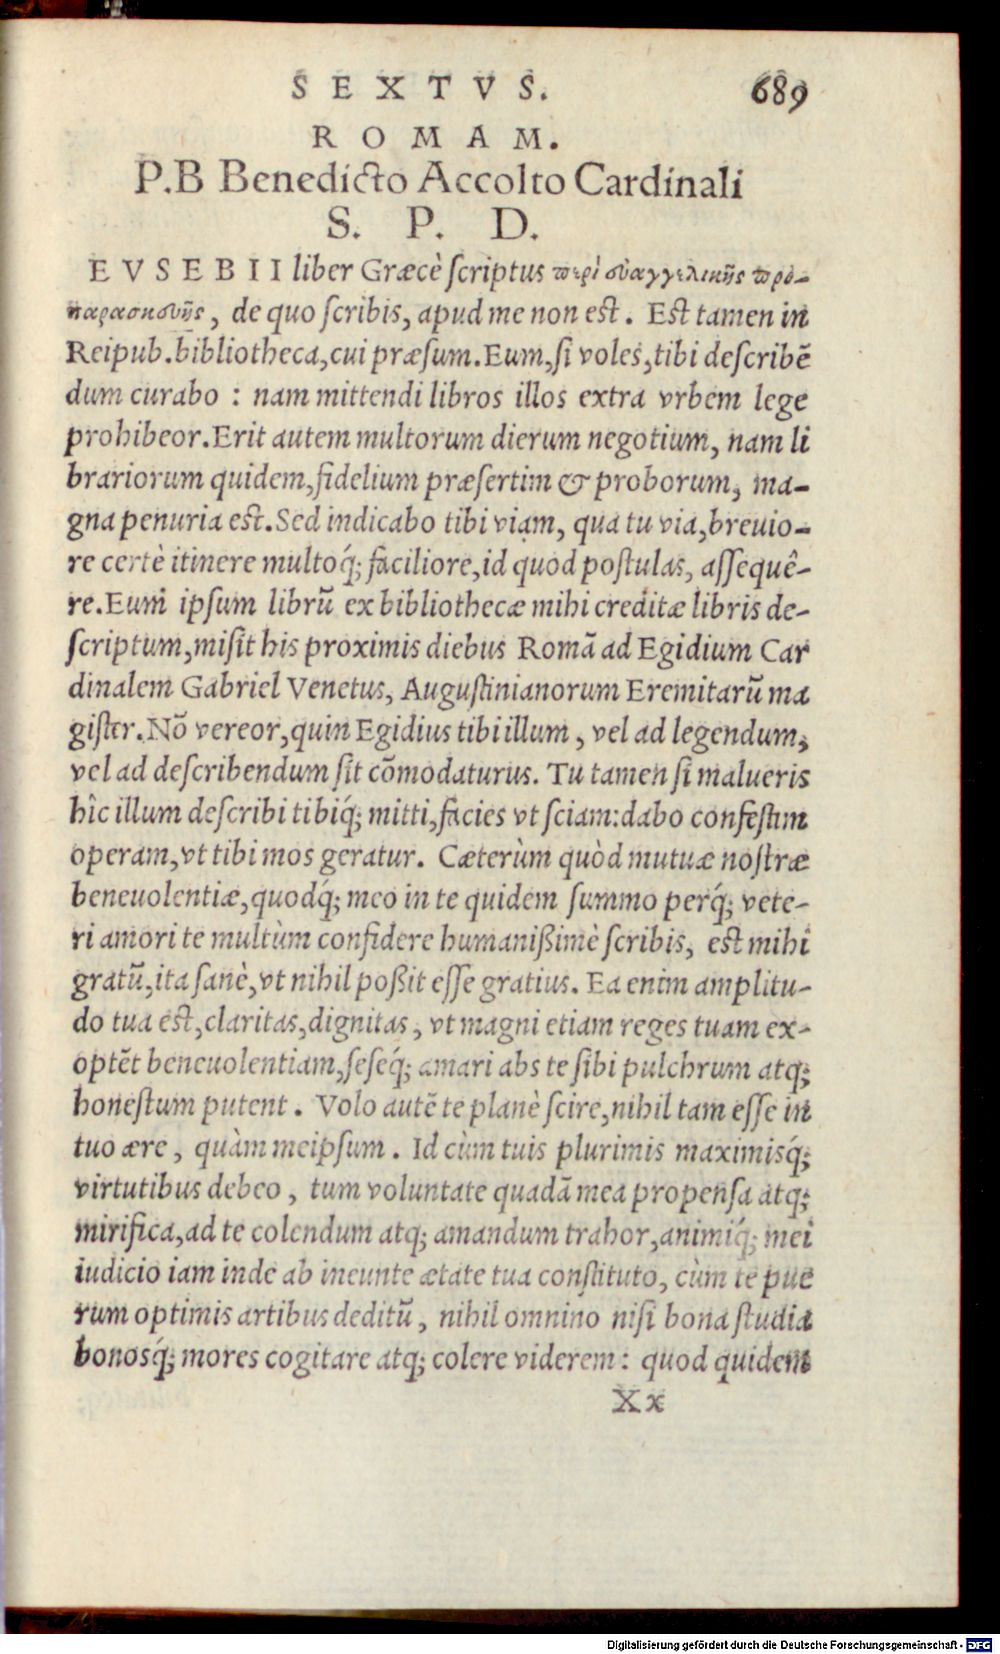 SEXTVS. 689
ROMAM.
P.B Benedicto Accolto Cardinali
S. P. D.
EVSEBII liber Græcè scriptus περὶ εὐαγγελικῆς προ-
παρασκευῆς, de quo scribis, apud me non est. Est tamen in
Reipub. bibliotheca, cui præsum. Eum, si voles, tibi describē
dum curabo : nam mittendi libros illos extra vrbem lege
prohibeor. Erit autem multorum dierum negotium, nam li
brariorum quidem, fidelium præsertim & proborum, ma-
gna penuria est. Sed indicabo tibi viam, qua tu via, breuio-
re certè itinere multoq́; faciliore, id quod postulas, assequê-
re. Eum ipsum librū ex bibliothecæ mihi creditæ libris de-
scriptum, misit his proximis diebus Romā ad Egidium Car
dinalem Gabriel Venetus, Augustinianorum Eremitarū ma
gister. Nō vereor, quin Egidius tibi illum, vel ad legendum,
vel ad describendum sit cōmodaturus. Tu tamen si malueris
hîc illum describi tibiq́; mitti, facies vt sciam: dabo confestim
operam, vt tibi mos geratur. Cæterùm quòd mutuæ nostræ
beneuolentiæ, quodq́; meo in te quidem summo perq́; vete-
ri amori te multùm confidere humanißimè scribis, est mihi
gratū, ita sanè, vt nihil poßit esse gratius. Ea enim amplitu-
do tua est, claritas, dignitas, vt magni etiam reges tuam ex-
optēt beneuolentiam, seseq́; amari abs te sibi pulchrum atq;
honestum putent. Volo autē te planè scire, nihil tam esse in
tuo ære, quàm meipsum. Id cùm tuis plurimis maximisq́;
virtutibus debeo, tum voluntate quadā mea propensa atq;
mirifica, ad te colendum atq; amandum trahor, animiq́; mei
iudicio iam inde ab ineunte ætate tua constituto, cùm te pue
rum optimis artibus deditū, nihil omnino nisi bona studia
bonosq́; mores cogitare atq; colere viderem : quod quidem
Xx
Digitalisierung gefördert durch die Deutsche Forschungsgemeinschaft - DFG